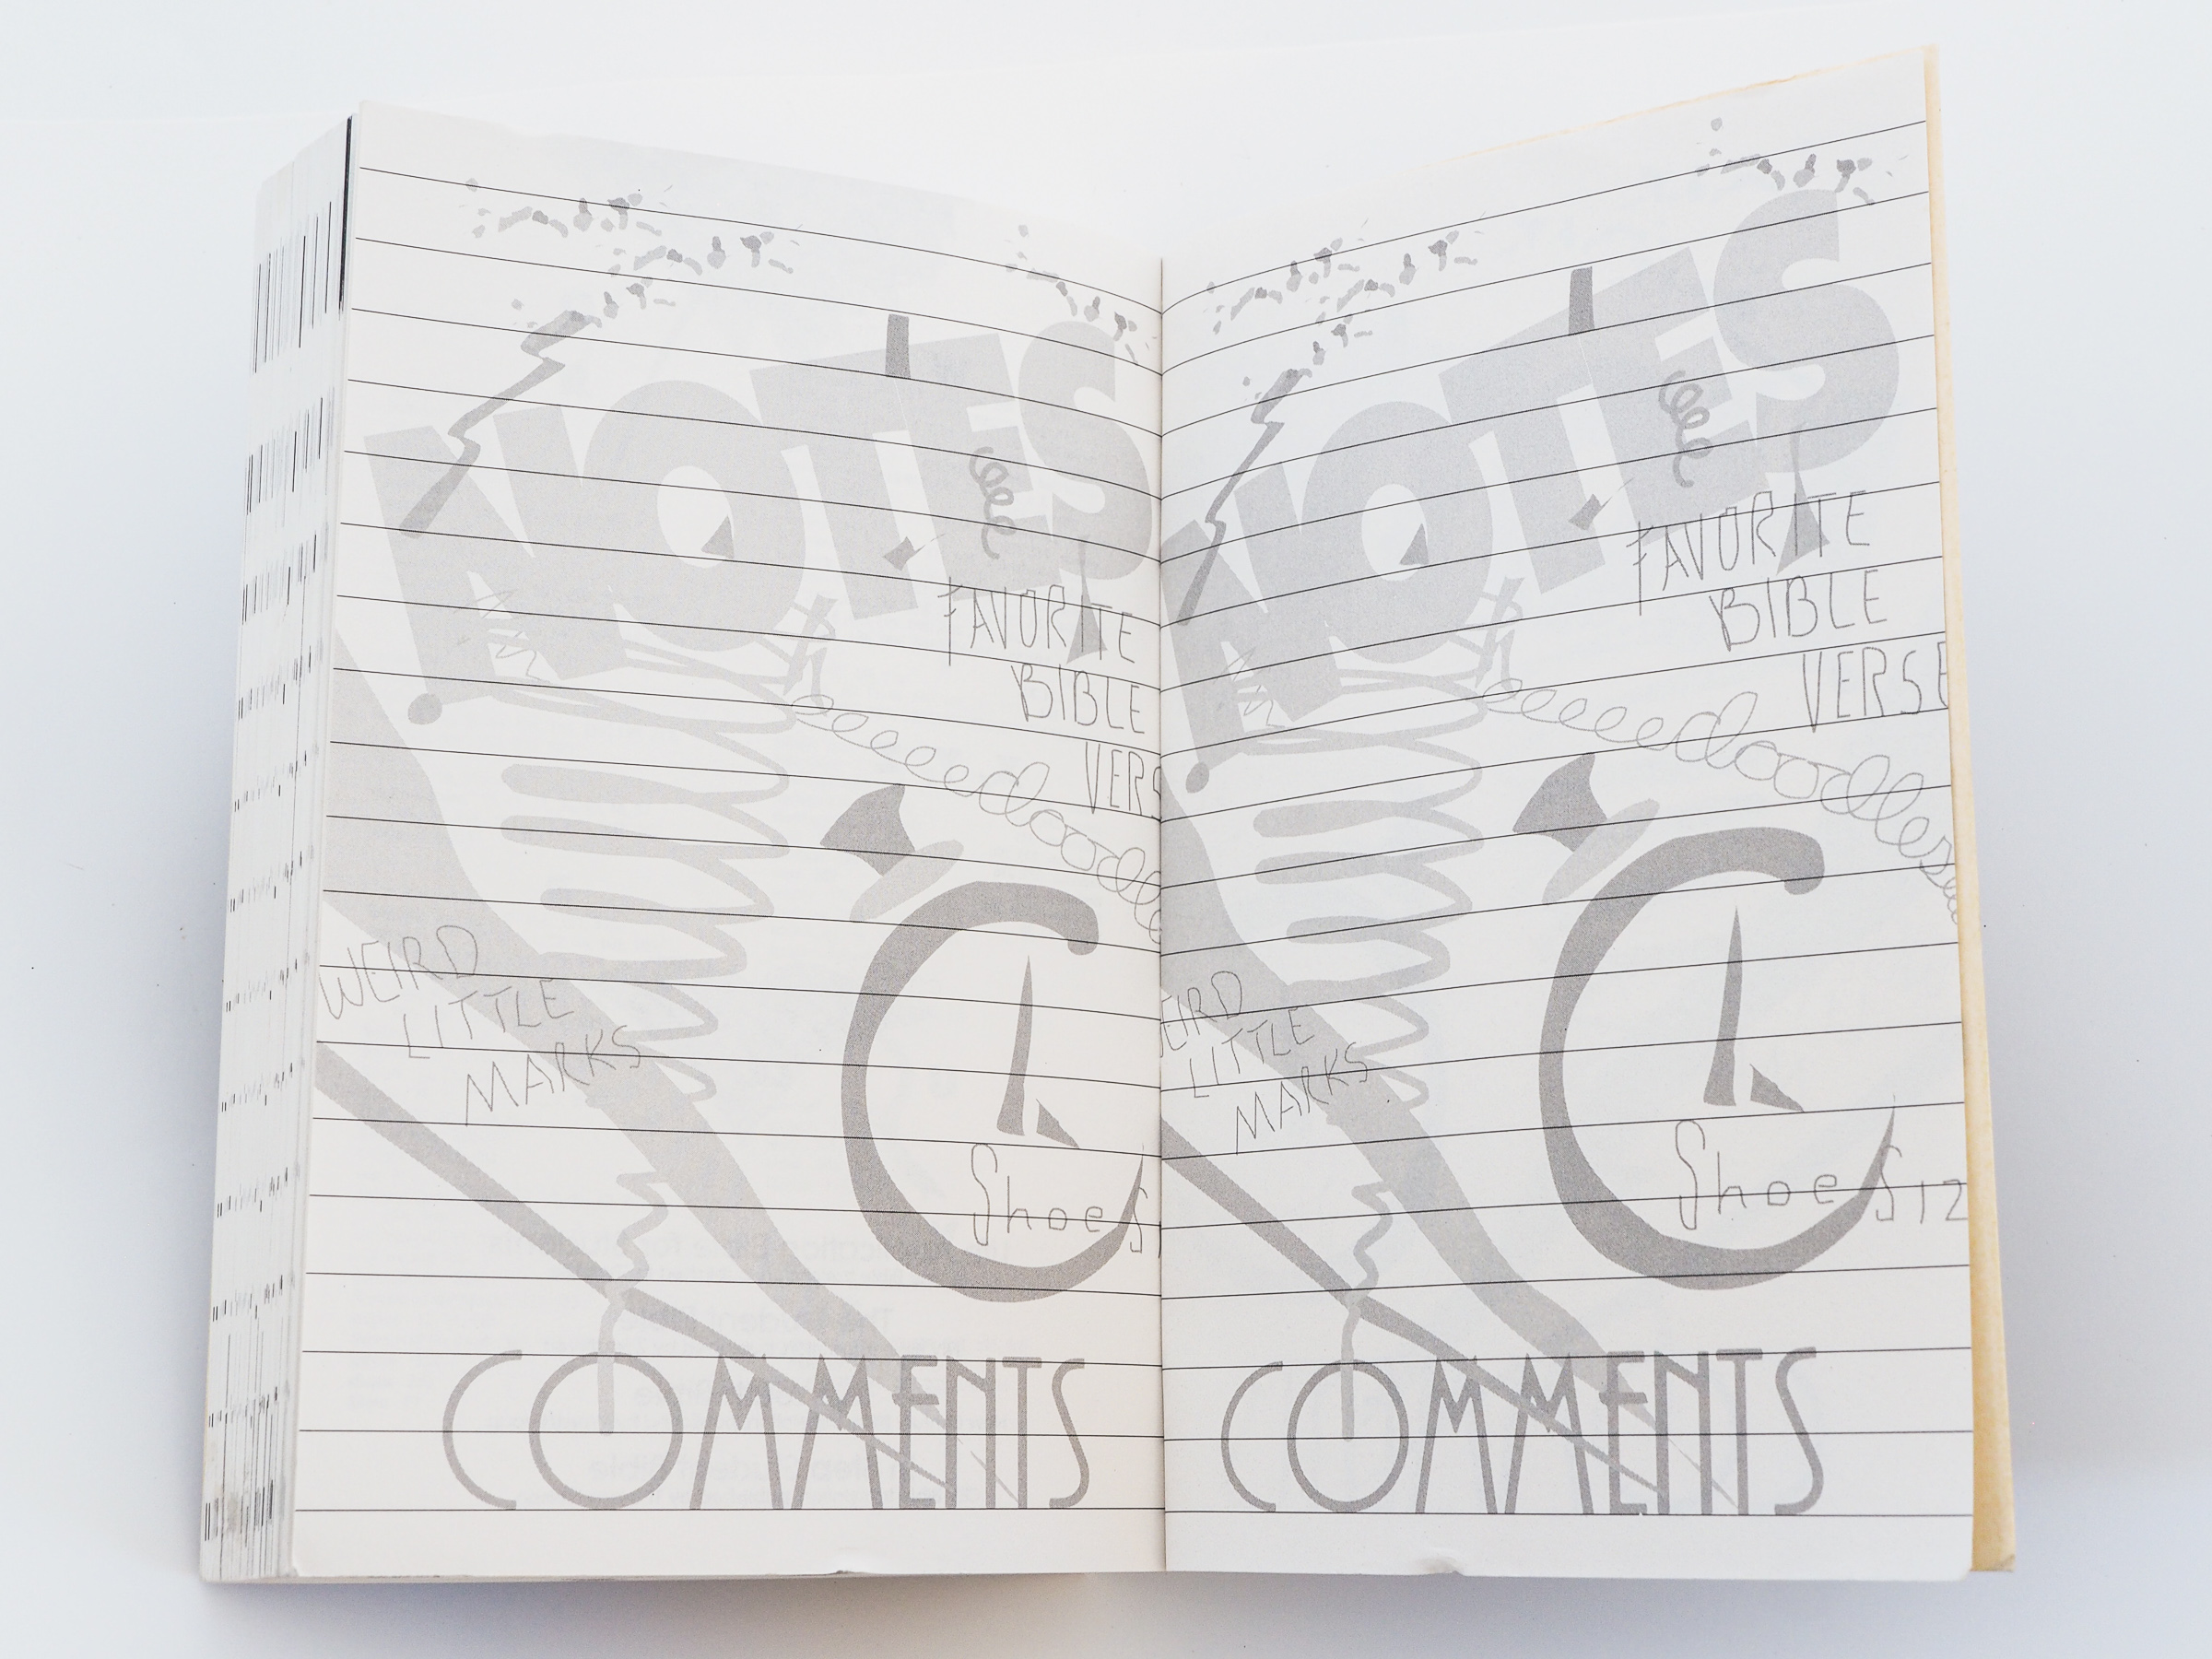 NOTES
FAVORITE
BIBLE
VERS
doodle
WEIRD
LITTLE
MARKS
Shoe S
COMMENTS
NOTES
FAVORITE
BIBLE
VERSE
doodles
EIRD
LITTLE
MARKS
Shoe S12
COMMENTS